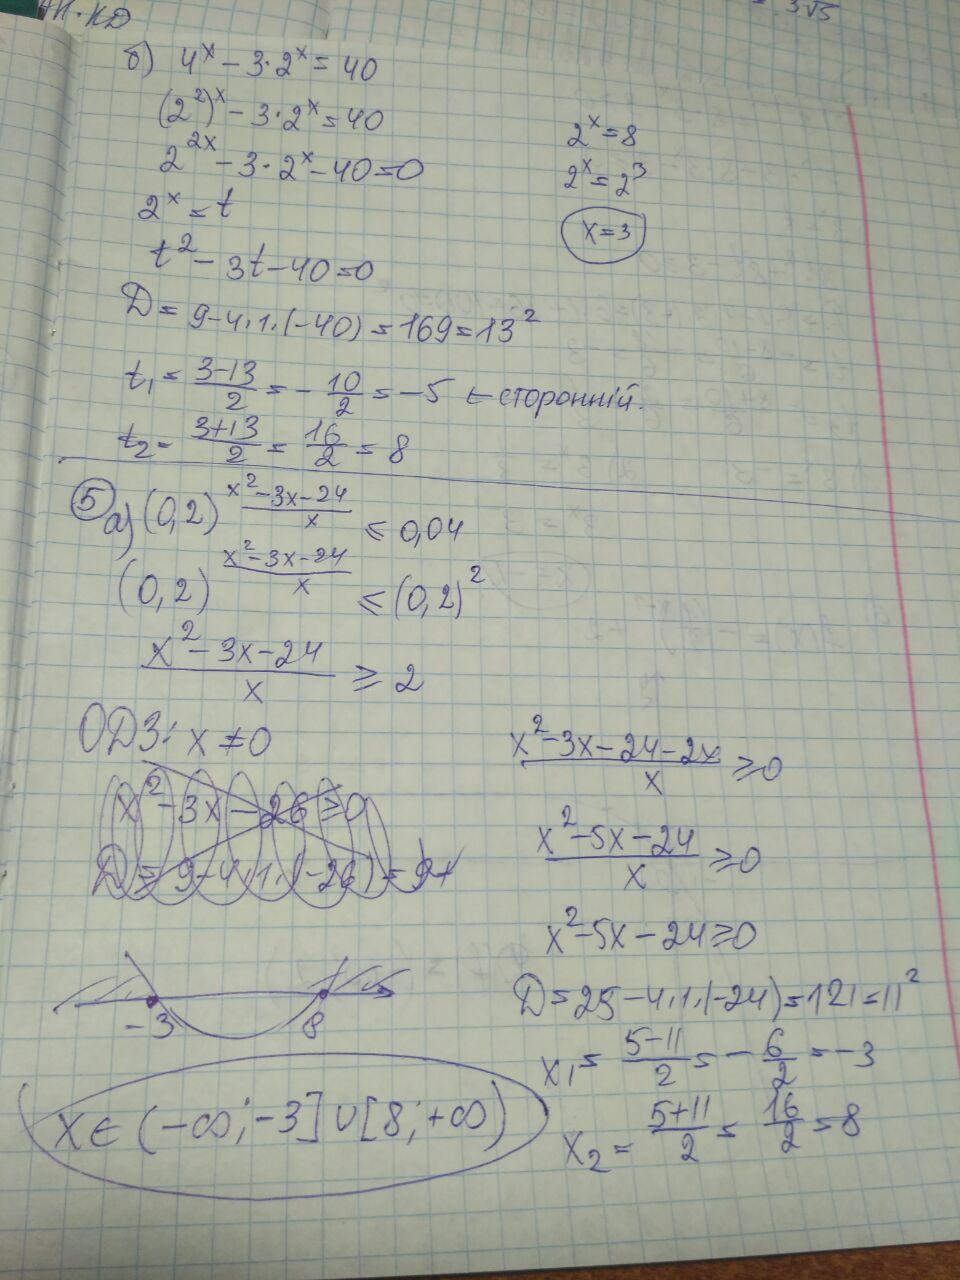 = 3√5
б) 4^x - 3·2^x = 40
(2^2)^x - 3·2^x = 40
2^{2x} - 3·2^x - 40 = 0
2^x = t
t^2 - 3t - 40 = 0
D = 9 - 4·1·(-40) = 169 = 13^2
t_1 = \frac{3-13}{2} = -\frac{10}{2} = -5 ← сторонній.
t_2 = \frac{3+13}{2} = \frac{16}{2} = 8
2^x = 8
2^x = 2^3
x = 3
5 а) (0,2)^{\frac{x^2-3x-24}{x}} ≤ 0,04
(0,2)^{\frac{x^2-3x-24}{x}} ≤ (0,2)^2
\frac{x^2-3x-24}{x} ≥ 2
ОДЗ: x ≠ 0
x^2 - 3x - 26 ≥ 0
D = 9 - 4·1·(-26) = 9+
\frac{x^2-3x-24-2x}{x} ≥ 0
\frac{x^2-5x-24}{x} ≥ 0
x^2 - 5x - 24 ≥ 0
D = 25 - 4·1·(-24) = 121 = 11^2
x_1 = \frac{5-11}{2} = -\frac{6}{2} = -3
x_2 = \frac{5+11}{2} = \frac{16}{2} = 8
-3 8
x ∈ (-∞; -3] ∪ [8; +∞)